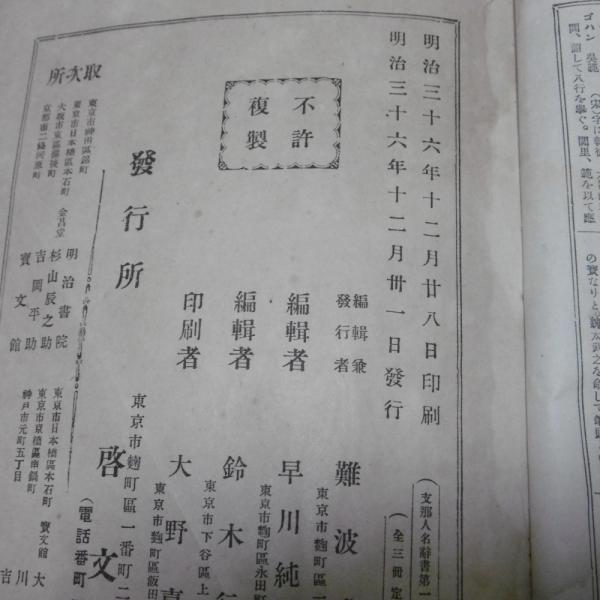 明治三十六年十二月廿八日印刷
明治三十六年十二月卅一日發行
不許
複製
編輯兼
發行者
難波
東京市麴町區一
編輯者
早川純
東京市麴町區永田町
編輯者
鈴木行
東京市下谷區上
印刷者
大野喜
東京市麴町區飯田
發行所
東京市麴町區一番町二
啓文
(電話番町
取次所
東京市神田區錦町
明治書院
東京市日本橋區本石町
杉山辰之助
大坂市東區備後町
金昌堂
吉岡平助
京都市二條河原町
寶文館
東京市日本橋區本石町
寶文館
東京市京橋區南鍋町
神戸市元町五丁目
大川
吉
(支那人名辭書第一
(全三冊定
ゴハン
吳範
間、詔して八行を擧ぐ。閭里、範を以て應